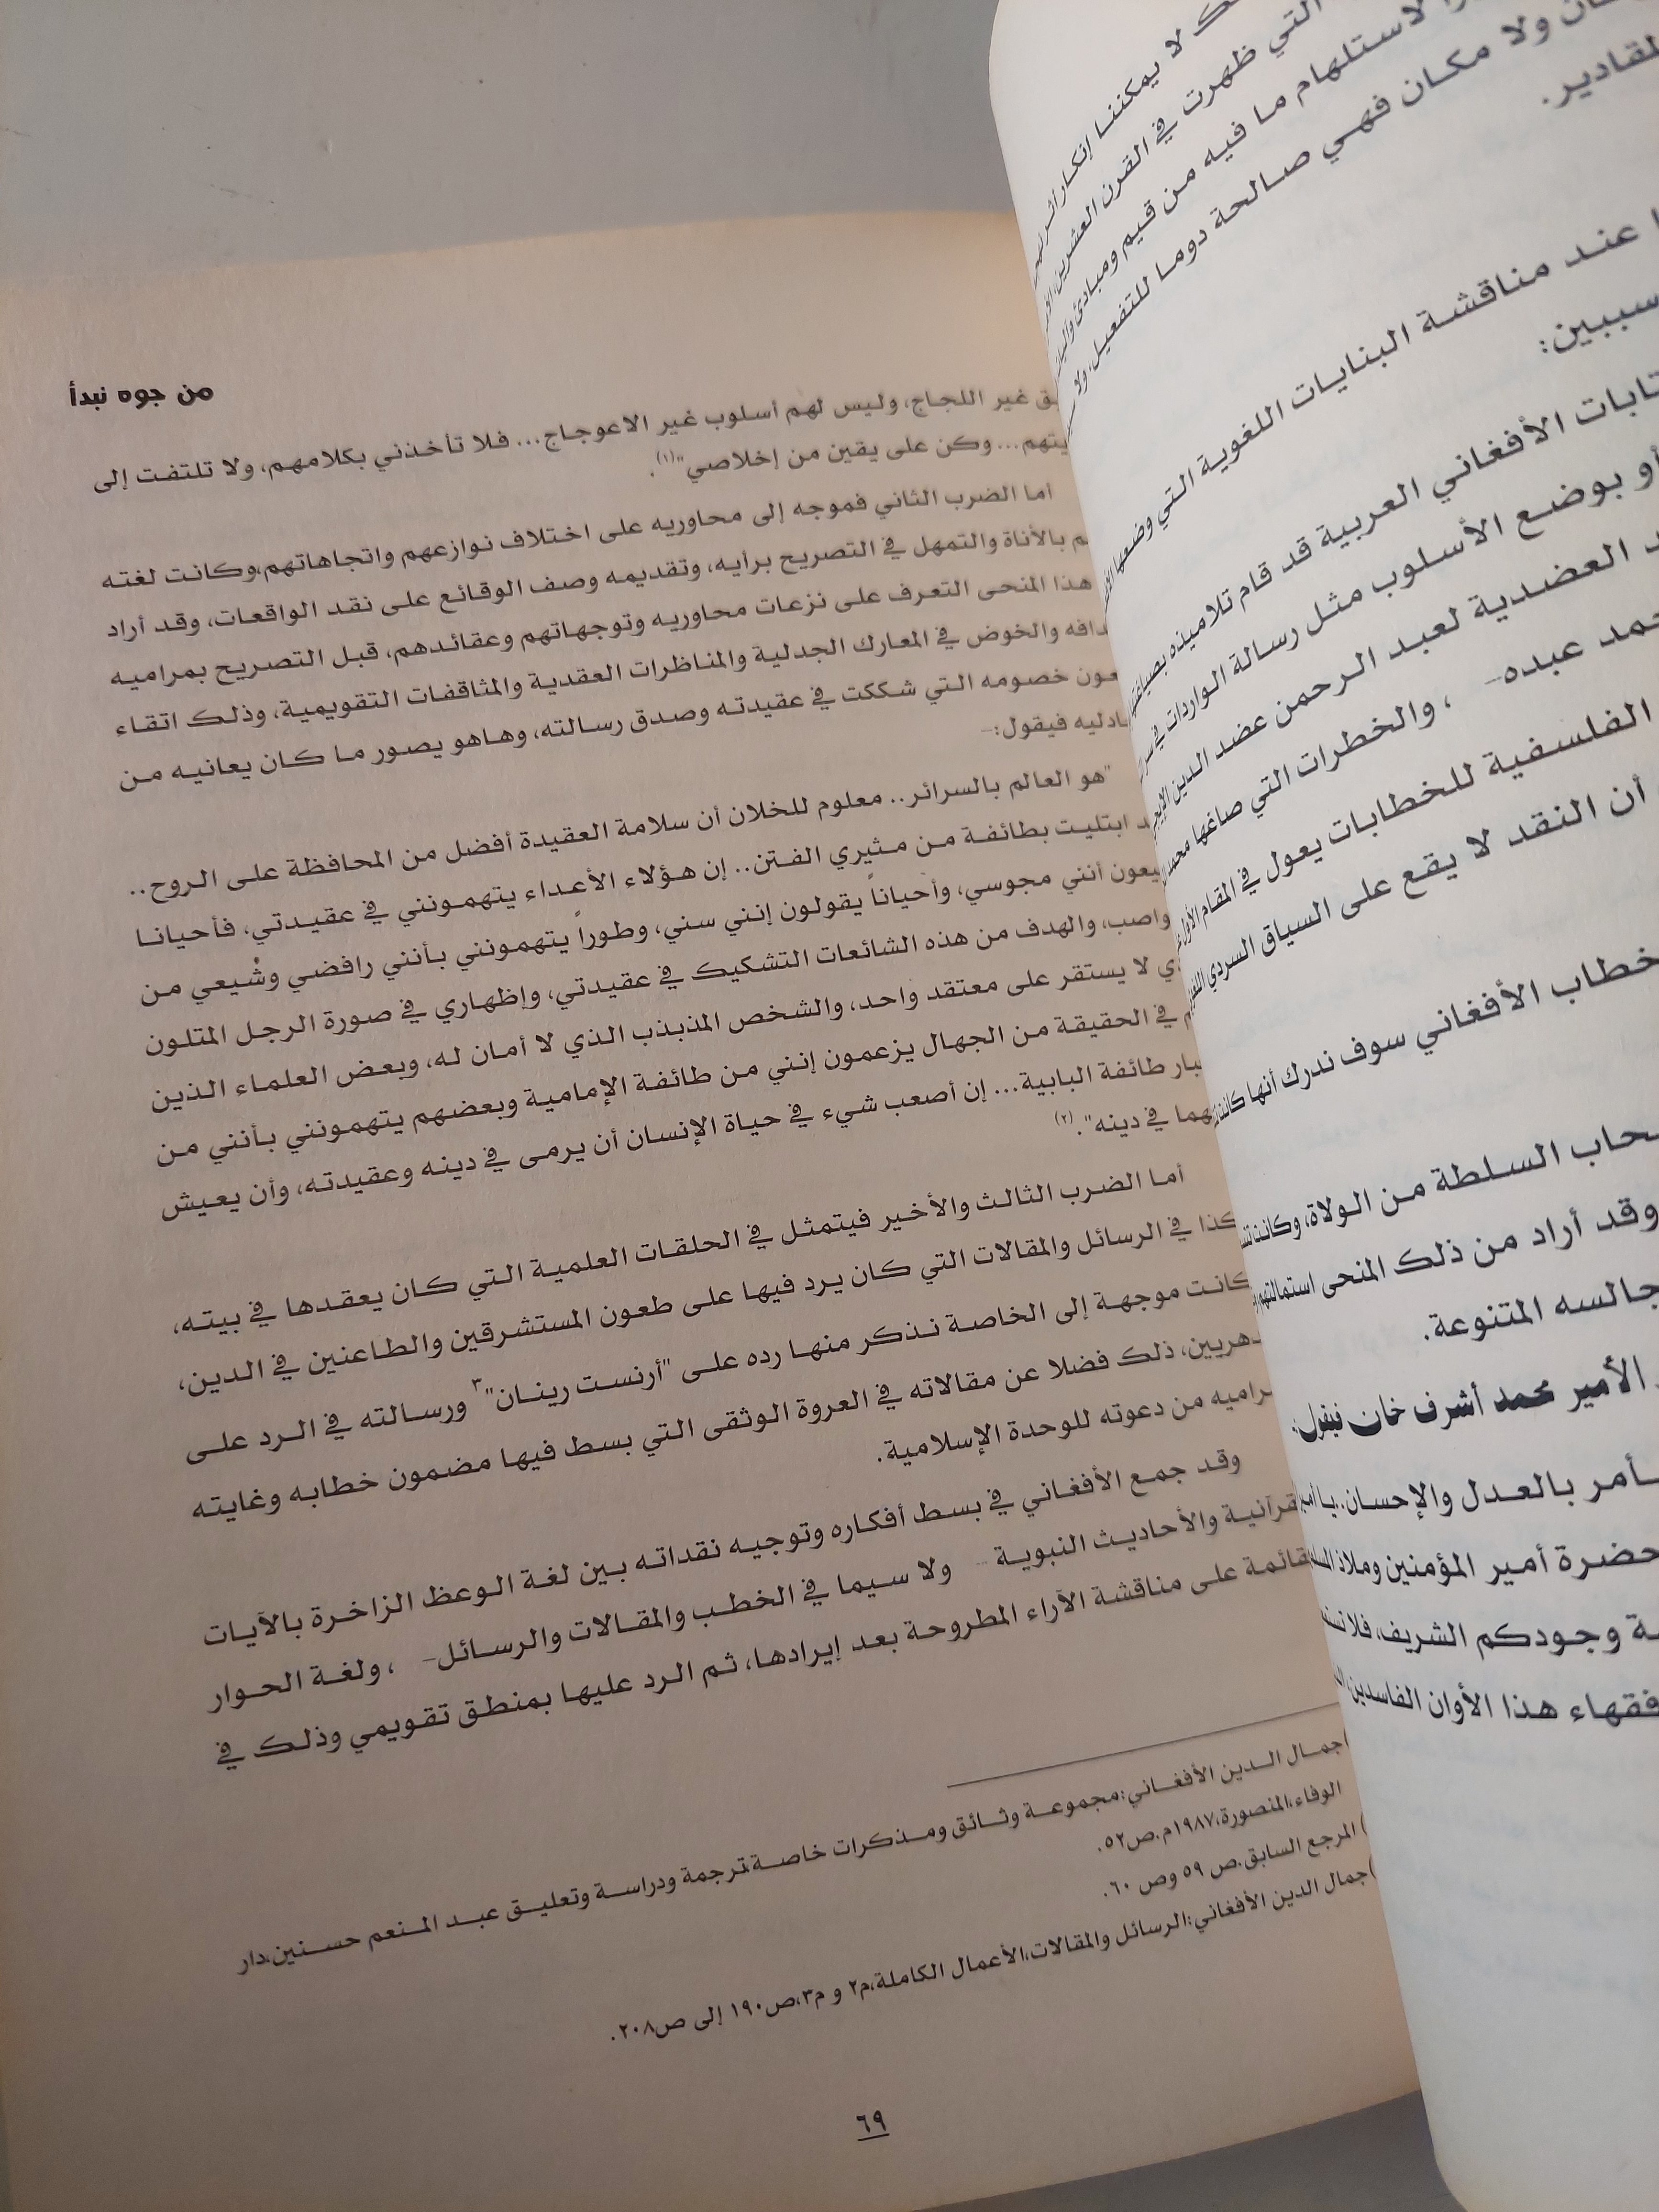 لا يمكننا إنكار
التي ظهرت في القرن العشرين
لاستلهام ما فيه من قيم ومبادئ
ولا مكان فهي صالحة دوما للتفعيل، ولا
عند مناقشة البنايات اللغوية التي وضعها
الأفغاني العربية قد قام تلاميذه
أو بوضع الأسلوب مثل رسالة الواردات في
العضدية لعبد الرحمن عضد الدين
عبده– ، والخطرات التي صاغها محمد
الفلسفية للخطابات يعول في المقام الأول
أن النقد لا يقع على السياق السردي
خطاب الأفغاني سوف ندرك أنها كانت
السلطة من الولاة، وكانت
وقد أراد من ذلك المنحى استمالتهم
المتنوعة.
الأمير محمد أشرف خان فيقول:
بالعدل والإحسان..يا
حضرة أمير المؤمنين وملاذ
وجودكم الشريف، فلا
فقهاء هذا الأوان الفاسدين
من جوه نبدأ
غير اللجاج، وليس لهم أسلوب غير الاعوجاج... فلا تأخذني بكلامهم، ولا تلتفت إلى
... وكن على يقين من إخلاصي"(١).
أما الضرب الثاني فموجه إلى محاوريه على اختلاف نوازعهم واتجاهاتهم،وكانت لغته
بالأناة والتمهل في التصريح برأيه، وتقديمه وصف الوقائع على نقد الواقعات، وقد أراد
هذا المنحى التعرف على نزعات محاوريه وتوجهاتهم وعقائدهم، قبل التصريح بمراميه
والخوض في المعارك الجدلية والمناظرات العقدية والمثاقفات التقويمية، وذلك اتقاء
خصومه التي شككت في عقيدته وصدق رسالته، وهاهو يصور ما كان يعانيه من
فيقول:–
"هو العالم بالسرائر.. معلوم للخلان أن سلامة العقيدة أفضل من المحافظة على الروح..
ابتليت بطائفة من مثيري الفتن.. إن هؤلاء الأعداء يتهمونني في عقيدتي، فأحيانا
أنني مجوسي، وأحياناً يقولون إنني سني، وطوراً يتهمونني بأنني رافضي وشُيعي من
والهدف من هذه الشائعات التشكيك في عقيدتي، وإظهاري في صورة الرجل المتلون
لا يستقر على معتقد واحد، والشخص المذبذب الذي لا أمان له، وبعض العلماء الذين
في الحقيقة من الجهال يزعمون إنني من طائفة الإمامية وبعضهم يتهمونني بأنني من
طائفة البابية... إن أصعب شيء في حياة الإنسان أن يرمى في دينه وعقيدته، وأن يعيش
في دينه".(٢)
أما الضرب الثالث والأخير فيتمثل في الحلقات العلمية التي كان يعقدها في بيته،
في الرسائل والمقالات التي كان يرد فيها على طعون المستشرقين والطاعنين في الدين،
كانت موجهة إلى الخاصة نذكر منها رده على "أرنست رينان"٣ ورسالته في الرد على
ذلك فضلا عن مقالاته في العروة الوثقى التي بسط فيها مضمون خطابه وغايته
من دعوته للوحدة الإسلامية.
وقد جمع الأفغاني في بسط أفكاره وتوجيه نقداته بين لغة الوعظ الزاخرة بالآيات
والأحاديث النبوية – ولا سيما في الخطب والمقالات والرسائل– ، ولغة الحوار
على مناقشة الآراء المطروحة بعد إيرادها، ثم الرد عليها بمنطق تقويمي وذلك في
)جمال الدين الأفغاني:مجموعة وثائق ومذكرات خاصة،ترجمة ودراسة وتعليق عبد المنعم حسنين،دار
الوفاء،المنصورة،١٩٨٧م،ص٥٢.
) المرجع السابق.ص ٥٩ وص ٦٠.
)جمال الدين الأفغاني:الرسائل والمقالات،الأعمال الكاملة،م٢ و م٣،ص١٩٠ إلى ص٢٠٨.
٦٩